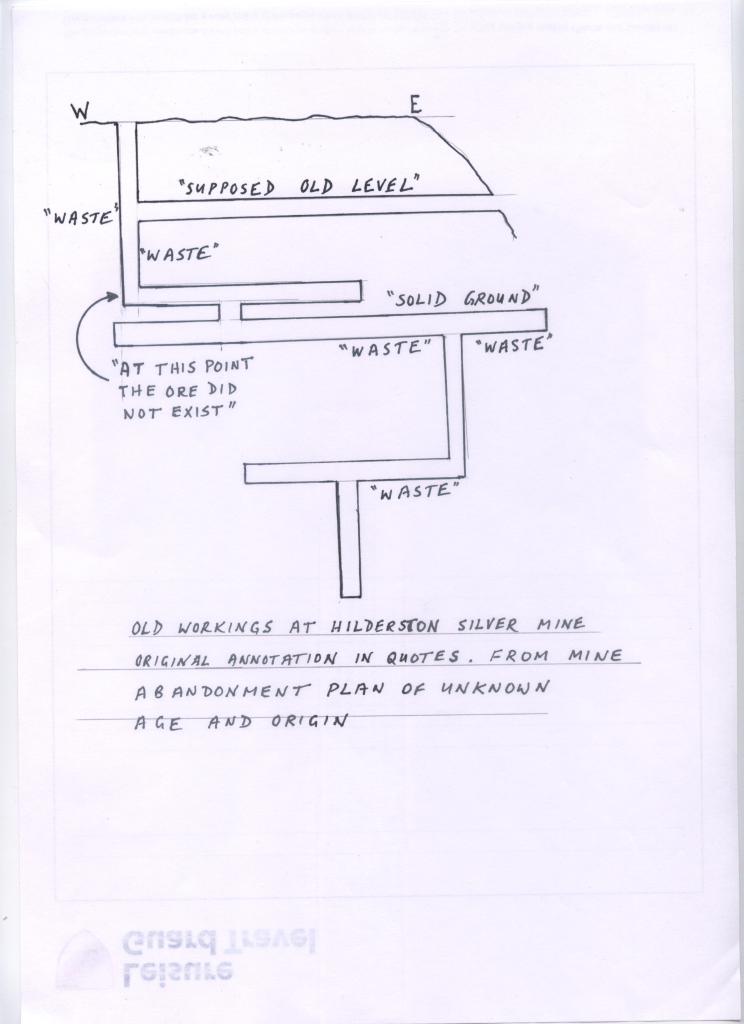 W
E
"SUPPOSED OLD LEVEL"
"WASTE"
"WASTE"
"SOLID GROUND"
"WASTE"
"WASTE"
"AT THIS POINT
THE ORE DID
NOT EXIST"
"WASTE"
OLD WORKINGS AT HILDERSTON SILVER MINE
ORIGINAL ANNOTATION IN QUOTES. FROM MINE
ABANDONMENT PLAN OF UNKNOWN
AGE AND ORIGIN
Guard Travel
Leisure